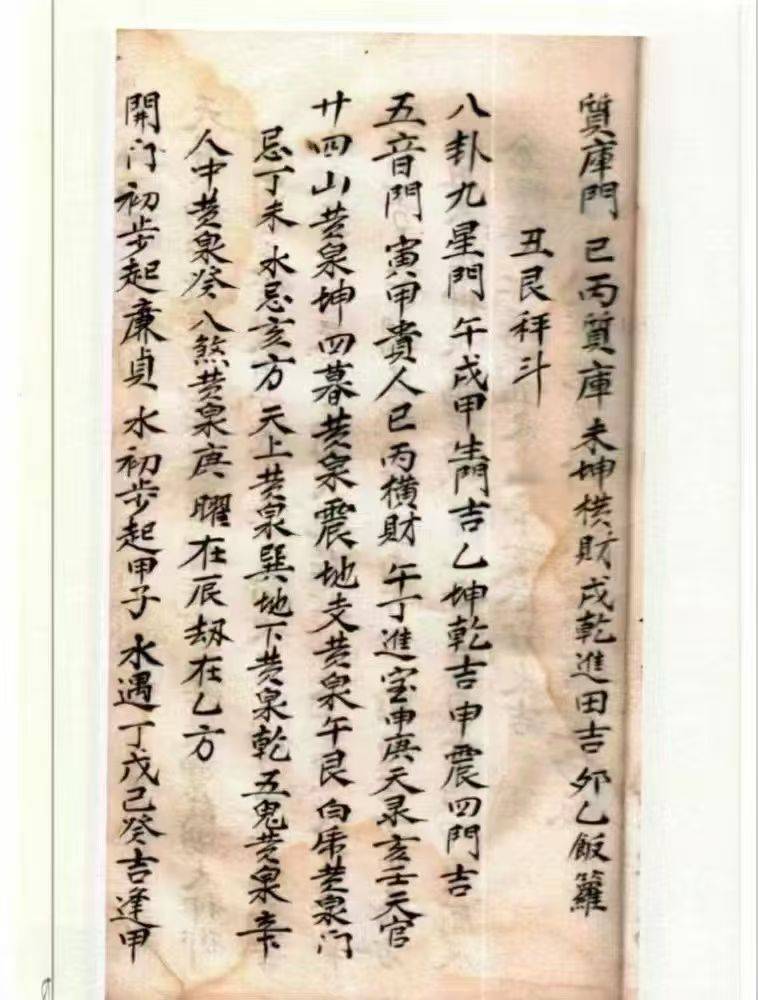 質庫門 巳丙質庫 未坤横財 戌乾進田吉 夘乙飯籮
丑艮秤斗
八卦九星門 午戌甲生門吉 乙坤乾吉 申震四門吉
五音門 寅甲貴人 巳丙横財 午丁進宝 申庚天彔 亥壬天官
廿四山黄泉坤 四暮黄泉震 地支黄泉午艮 白虎黄泉门
忌丁未 水忌亥方 天上黄泉巽 地下黄泉乾 五鬼黄泉辛
人中黄泉癸 八煞黄泉庚 曜在辰 刼在乙方
開门初步起廉貞 水初步起甲子 水遇丁戊己癸吉 逢甲